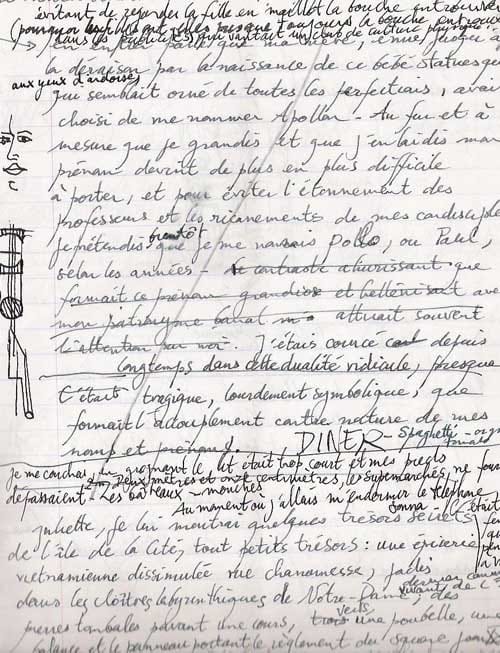 évitant de regarder la fille en maillot la bouche entrouverte
(pourquoi ont-elles presque toujours la bouche entrouverte
dans les publicités) qui vantait un club de culture physique
que ma mère, émue jusqu'à
la déraison par la naissance de ce bébé statuesque
aux yeux d'ardoise,
qui semblait orné de toutes les perfections, avait
choisi de me nommer Apollon - Au fur et à
mesure que je grandis et que j'enlaidis mon
prénom devint de plus en plus difficile
à porter, et pour éviter l'étonnement des
professeurs et les ricanements de mes condisciples
je prétendis bientôt que je me nommais Pollo, ou Paul,
selon les années - le contraste ahurissant que
formait ce prénom grandiose et hellénisant avec
mon patronyme banal attirait souvent
l'attention sur moi. J'étais coincé depuis
longtemps dans cette dualité ridicule, presque
C'était tragique, lourdement symbolique, que
formait l'accouplement contre nature de mes
noms et prénoms. DINER - Spaghetti -
tomate
Je me couchai, en grognant, le lit était trop court et mes pieds
dépassaient - Deux mètres et onze centimètres, les supermarchés, ne
Les bateaux-mouches
Au moment où j'allais m'endormir le téléphone
sonna - C'était
Juliette, je lui montrai quelques trésors secrets
de l'île de la Cité, tout petits trésors : une épicerie
vietnamienne dissimulée rue chanoinesse, jadis
dans les cloîtres labyrinthiques de Notre-Dame, des
pierres tombales pavant une cour, trois une poubelle, une
verts,
balance et le panneau portant le règlement du square